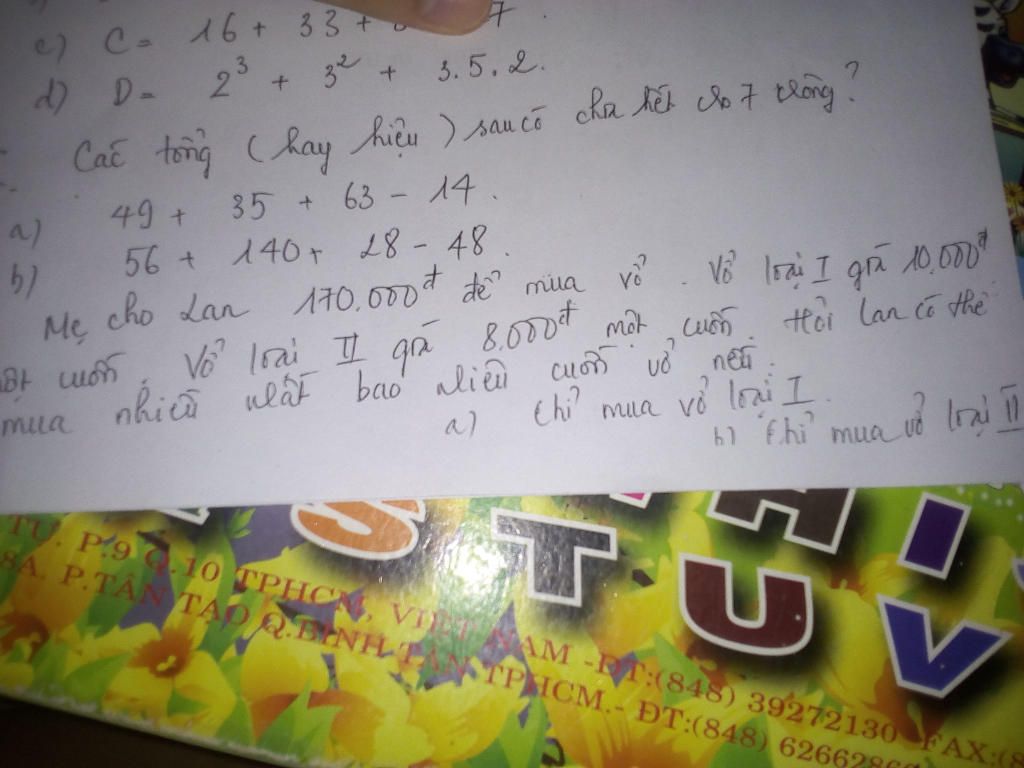 c) C = 16 + 33 + 7.
d) D = 2³ + 3² + 3.5.2.
Các tổng (hay hiệu) sau có chia hết cho 7 không?
a) 49 + 35 + 63 - 14.
b) 56 + 140 + 28 - 48.
Mẹ cho Lan 170.000đ để mua vở. Vở loại I giá 10.000đ
một cuốn. Vở loại II giá 8.000đ một cuốn. Hỏi Lan có thể
mua nhiều nhất bao nhiêu cuốn vở nếu:
a) Chỉ mua vở loại I.
b) Chỉ mua vở loại II
STU
V
TU. P.9 Q.10 TPHCM, VIỆT NAM -ĐT:(848) 39272130 FAX:(8
8A. P.TÂN TẠO Q.BÌNH TÂN TPHCM.- ĐT:(848) 6266286